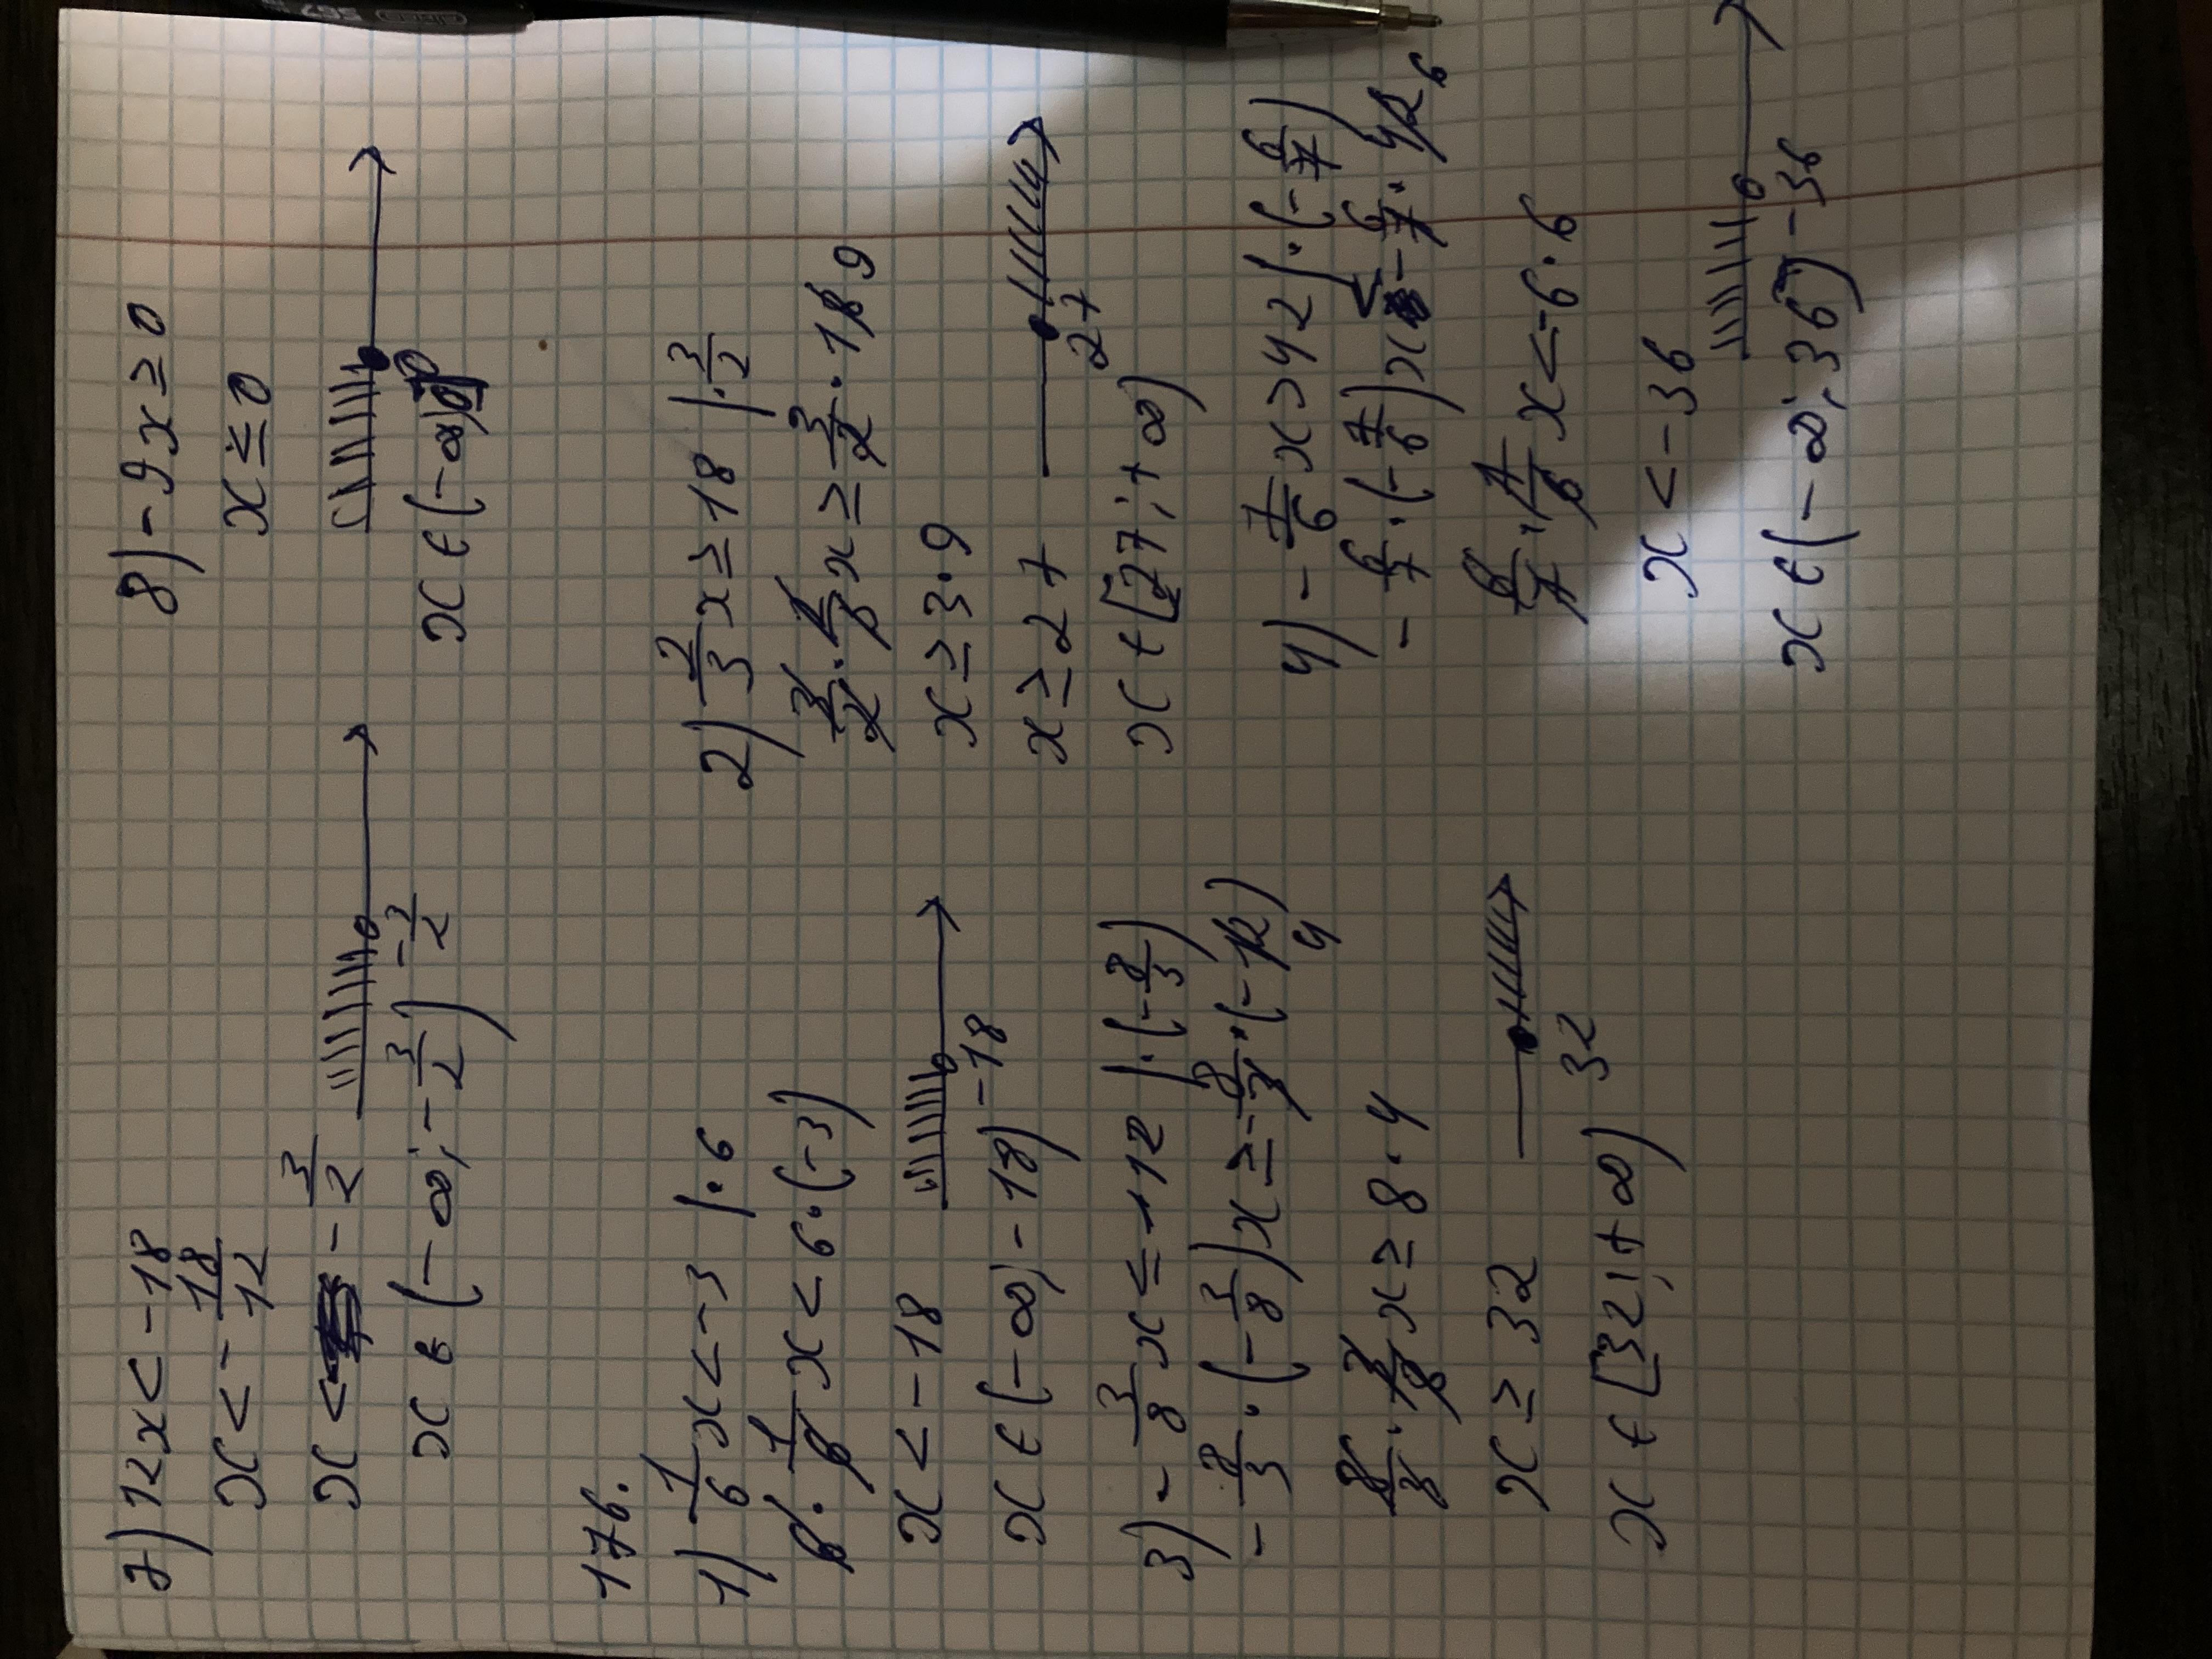 7) 12x < -18
x < - 18/12
x < - 3/2
x ∈ (-∞; - 3/2) - 3/2
8) -9x ≥ 0
x ≤ 0
x ∈ (-∞; 0] 0
176.
1) 1/6 x < -3 | · 6
6 · 1/6 x < 6 · (-3)
x < -18
x ∈ (-∞; -18) -18
2) 2/3 x ≥ 18 | · 3/2
3/2 · 2/3 x ≥ 3/2 · 18 9
x ≥ 3 · 9
x ≥ 27
27
x ∈ [27; +∞)
3) - 3/8 x ≤ -12 | · (- 8/3)
- 8/3 · (- 3/8) x ≥ - 8/3 · (-12) 4
8/3 · 3/8 x ≥ 8 · 4
x ≥ 32
32
x ∈ [32; +∞)
4) - 7/6 x > 42 | · (- 6/7)
- 6/7 · (- 7/6) x < - 6/7 · 42 6
6/7 · 7/6 x < -6 · 6
x < -36
x ∈ (-∞; 36) -36